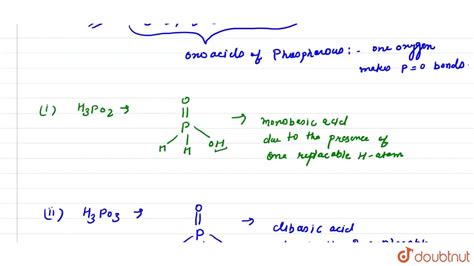 oxoacids of Phosphorous :- one oxygen
makes P=O bonds.
(i) H3PO2 → O
P
H H OH
→ monobasic acid
due to the presence of
one replacable H-atom
(ii) H3PO3 → O
P
→ dibasic acid
doubtnut